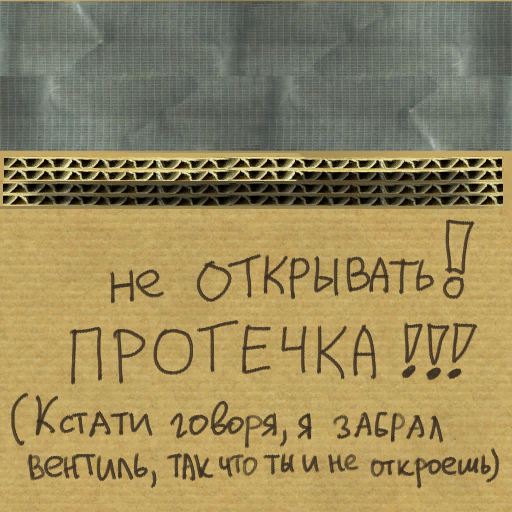 не ОТКРЫВАТЬ!
ПРОТЕЧКА!!!
(Кстати говоря, я ЗАБРАЛ
вентиль, так что ты и не откроешь)